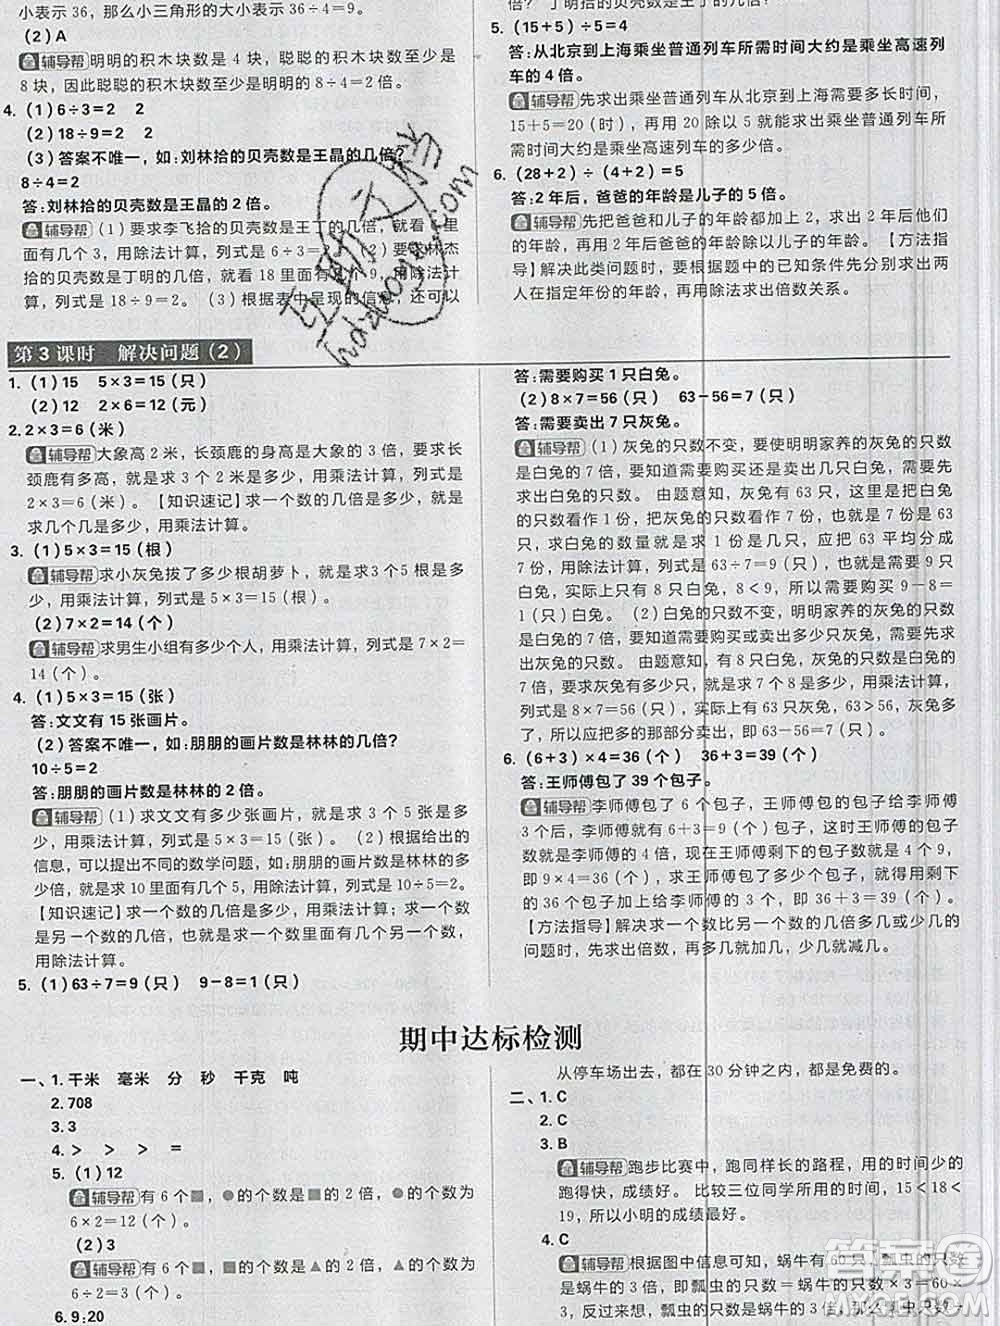 小表示36，那么小三角形的大小表示36÷4＝9。
(2)A
辅导帮 明明的积木块数是 4 块，聪聪的积木块数至少是
8块，因此聪聪的积木块数至少是明明的8÷4＝2倍。
4.(1)6÷3＝2　2
(2)18÷9＝2　2
(3)答案不唯一，如：刘林拾的贝壳数是王晶的几倍？
8÷4＝2
答：刘林拾的贝壳数是王晶的2倍。
辅导帮 (1)要求李飞拾的贝壳数是王丁的几倍，就看6里
面有几个3，用除法计算，列式是6÷3＝2。(2)要求林杰
拾的贝壳数是丁明的几倍，就看18里面有几个9，用除法计
算，列式是18÷9＝2。(3)根据表中呈现的信息，还可以
5.(15＋5)÷5＝4
答：从北京到上海乘坐普通列车所需时间大约是乘坐高速列
车的4倍。
辅导帮 先求出乘坐普通列车从北京到上海需要多长时间，
15＋5＝20(时)，再用 20 除以 5 就能求出乘坐普通列车所
需时间大约是乘坐高速列车的多少倍。
6.(28＋2)÷(4＋2)＝5
答：2年后，爸爸的年龄是儿子的5倍。
辅导帮 先把爸爸和儿子的年龄都加上 2，求出 2 年后他们
的年龄，再用爸爸的年龄除以儿子的年龄即可。【方法指
导】解决此类问题时，要根据题中的已知条件先分别求出两
人在指定年份的年龄，再用除法求出倍数关系。
第3课时　解决问题(2)
1.(1)15　5×3＝15(只)
(2)12　2×6＝12(元)
2.2×3＝6(米)
辅导帮 大象高2米，长颈鹿的身高是大象的3倍，要求长
颈鹿有多高，就是求3个2米是多少，用乘法计算，列式是
2×3＝6(米)。【知识速记】求一个数的几倍是多少，就是
求几个几是多少，用乘法计算。
3.(1)5×3＝15(根)
辅导帮 求小灰兔拔了多少根胡萝卜，就是求3个5根是多
少，用乘法计算，列式是5×3＝15(根)。
(2)7×2＝14(个)
辅导帮 求男生小组有多少个人，用乘法计算，列式是7×2＝
14(个)。
4.(1)5×3＝15(张)
答：文文有15张画片。
(2)答案不唯一，如：朋朋的画片数是林林的几倍？
10÷5＝2
答：朋朋的画片数是林林的2倍。
辅导帮 (1)求文文有多少张画片，就是求3个5张是多少，
用乘法计算，列式是5×3＝15(张)。(2)根据给出的信
息，可以提出不同的数学问题，如：朋朋的画片数是林林的多
少倍，就是求10里面有几个5，用除法计算，列式是10÷5＝2。
【知识速记】求一个数的几倍是多少，用乘法计算；求一个数
是另一个数的几倍，也就是求一个数里面有几个另一个数，
用除法计算。
5.(1)63÷7＝9(只)　9－8＝1(只)
答：需要购买1只白兔。
(2)8×7＝56(只)　63－56＝7(只)
答：需要卖出7只灰兔。
辅导帮 (1)灰兔的只数不变，要使明明家养的灰兔的只数
是白兔的 7 倍，要知道需要购买还是卖出几只白兔，需要先
求出白兔的只数。由题意知，灰兔有63只，这里是把白兔
的只数看作 1 份，把灰兔的只数看作 7 份，7 份的只数是 63
只，求白兔的数量就是求 1 份是几只，应把 63 平均分成
7份，用除法计算，列式是63÷7＝9(只)，求出需要9只
白兔，实际上只有 8 只白兔，8＜9，所以需要购买 9－8＝
1(只)白兔。(2)白兔的只数不变，明明家养的灰兔的只数
是白兔的7倍，要知道需要购买或卖出多少只灰兔，需要先
求出灰兔的只数。由题意知，有 8 只白兔，灰兔的只数是白兔的
7倍，要求灰兔有多少只，就是求7个8只是多少，用乘法计算，
列式是8×7＝56(只)，实际上有63只灰兔，63＞56，灰兔多
了，所以应把多的那部分卖出，即63－56＝7(只)。
6.(6＋3)×4＝36(个)　36＋3＝39(个)
答：王师傅包了39个包子。
辅导帮 李师傅包了 6 个包子，王师傅包的包子给李师傅
3个后，李师傅就有6＋3＝9(个)包子，这时王师傅剩下的包
子数是李师傅的 4 倍，求王师傅剩下的包子数就是求 4 个 9，
即 9×4＝36(个)。求王师傅包了多少个包子，要用剩下
的36个包子加上给李师傅的3个，即36＋3＝39(个)。
【方法指导】解决求一个数比另一个数的几倍多几或少几的
问题时，先求出倍数，再多几就加几，少几就减几。
期中达标检测
一、1.千米　毫米　分　秒　千克　吨
2.708
3.3
4.＞　＞　＞　＝
5.(1)12
辅导帮 有 6 个■，●的个数是■的 2 倍，●的个数为
6×2＝12(个)。
(2)3
辅导帮 有 6 个■，■的个数是▲的 2 倍，▲的个数为
6÷2＝3(个)。
6.9:20
从停车场出去，都在30分钟之内，都是免费的。
二、1.C
2.C
3.B
辅导帮 跑步比赛中，跑同样长的路程，用的时间少的
跑得快，成绩好。比较三位同学所用的时间，15＜18＜
19，所以小明的成绩最好。
4.C
辅导帮 根据图中信息可知，蜗牛有60只，瓢虫的只数
是蜗牛的 3 倍，即瓢虫的只数＝蜗牛的只数×3＝60×
3，反过来想，瓢虫的只数是蜗牛的3倍，那么瓢虫只数÷